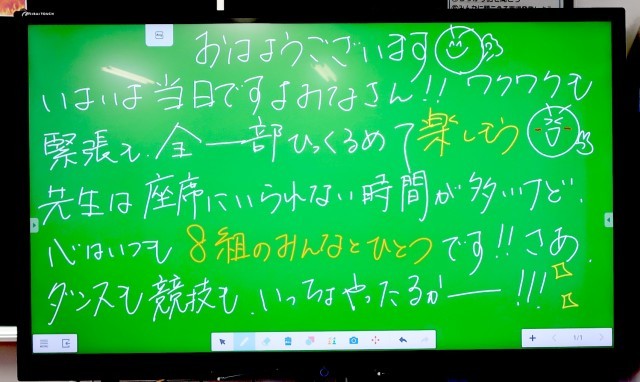 おはようございます
いよいよ当日ですよみなさん!! ワクワクも
緊張も、全一部ひっくるめて楽しもう
先生は座席にいられない時間が多いけど、
心はいつも8組のみんなとひとつです!! さあ、
ダンスも競技も、いっちょやったるかー!!!
1/1